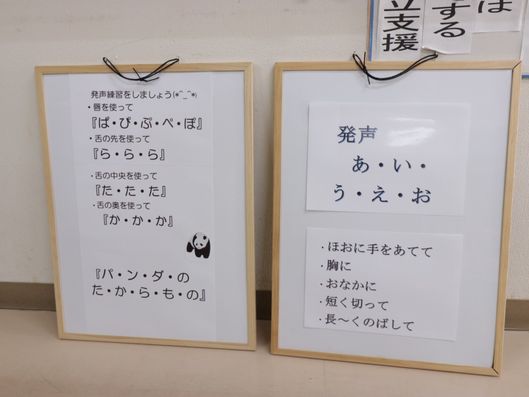 発声練習をしましょう(*^_^*)
・唇を使って
『ぱ・ぴ・ぷ・ぺ・ぽ』
・舌の先を使って
『ら・ら・ら』
・舌の中央を使って
『た・た・た』
・舌の奥を使って
『か・か・か』
『パ・ン・ダ・の
た・か・ら・も・の』
は
する
立支援
発声
あ・い・
う・え・お
・ほおに手をあてて
・胸に
・おなかに
・短く切って
・長〜くのばして